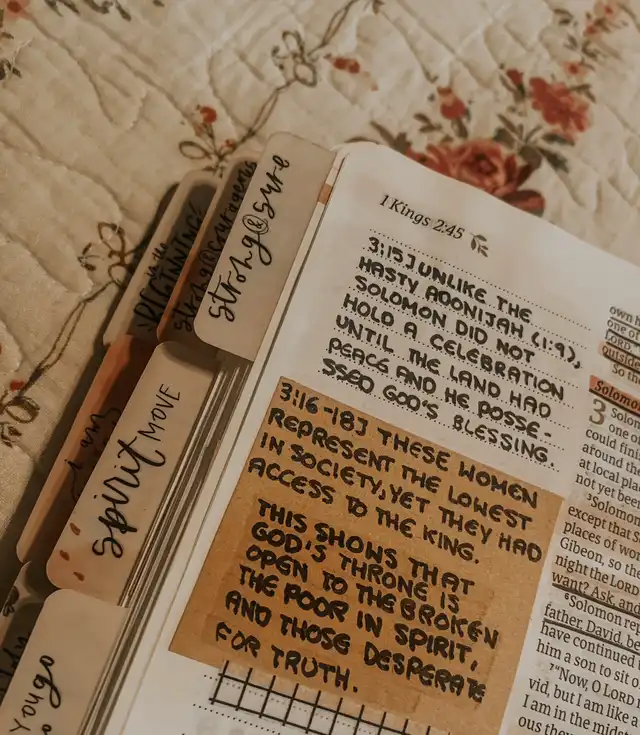 in the
BEGINNING
strong & courageous
strong & sure
I am
spirit MOVE
1 Kings 2:45
3:15] UNLIKE THE
HASTY ADONIJAH (1:9),
SOLOMON DID NOT
HOLD A CELEBRATION
UNTIL THE LAND HAD
PEACE AND HE POSSE-
SSED GOD'S BLESSING.
3:16-18] THESE WOMEN
REPRESENT THE LOWEST
IN SOCIETY, YET THEY HAD
ACCESS TO THE KING.
THIS SHOWS THAT
GOD'S THRONE IS
OPEN TO THE BROKEN
THE POOR IN SPIRIT,
AND THOSE DESPERATE
FOR TRUTH.
own
one of
LORD
outside
So
Solomon
3 Solom
one o
could fini
around th
at local pla
not yet bee
3Solomo
except that S
places of wo
Gibeon, so the
night the Lord
want? Ask, and
6Solomon rep
father, David, be
have continued
him a son to sit o
7"Now, O LORD
vid, but I am like a
I am in the midst
ous they